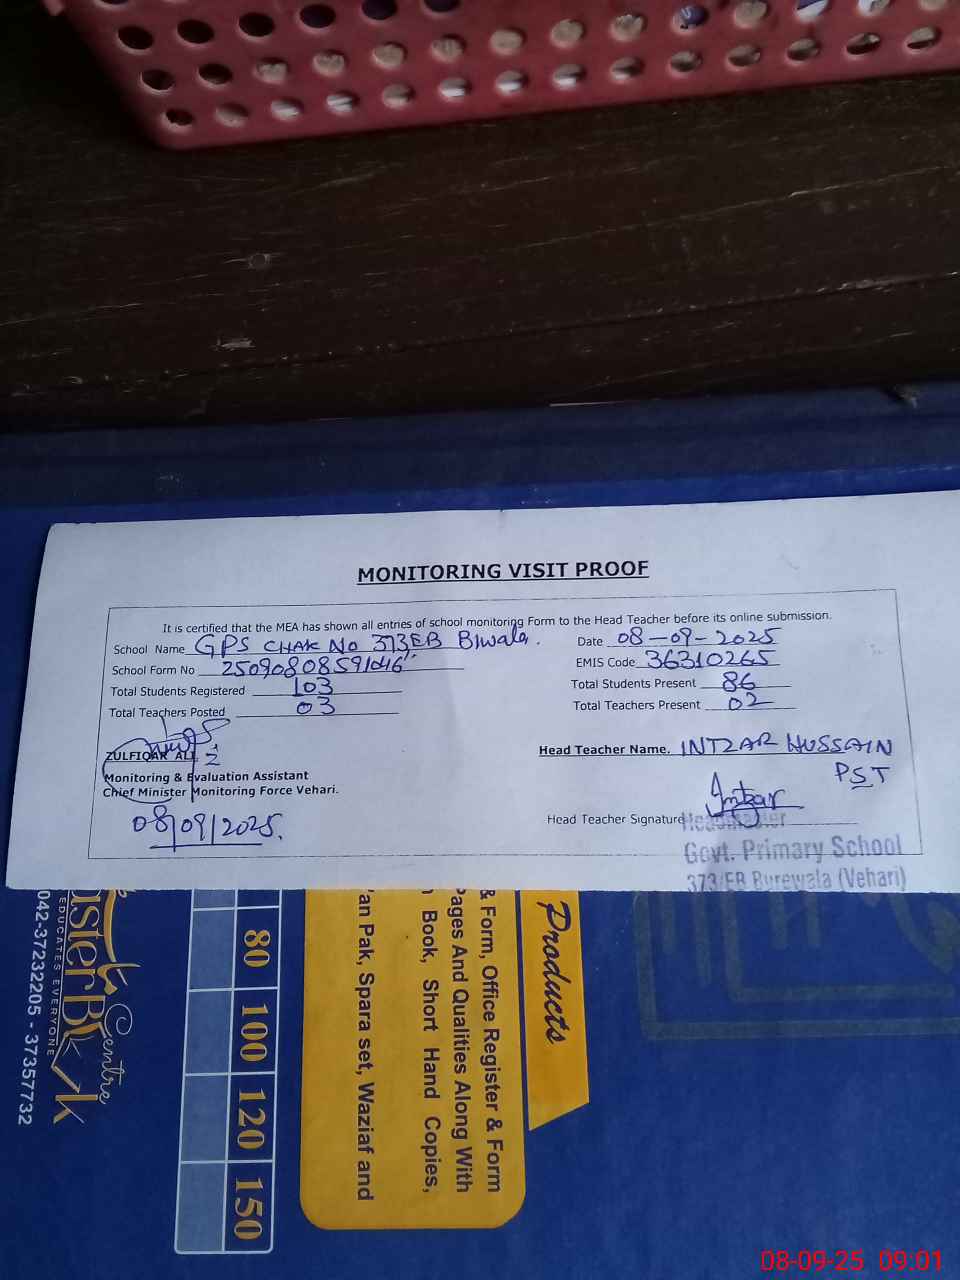 MONITORING VISIT PROOF
It is certified that the MEA has shown all entries of school monitoring Form to the Head Teacher before its online submission.
School Name GPS CHAK No 373EB B/wala.
Date 08-09-2025
School Form No 25090808591046
EMIS Code 36310265
Total Students Registered 103
Total Students Present 86
Total Teachers Posted 03
Total Teachers Present 02
ZULFIQAR ALI
Monitoring & Evaluation Assistant
Chief Minister Monitoring Force Vehari.
08/09/2025.
Head Teacher Name. INTZAR HUSSAIN
PST
Head Teacher Signature Intzar
Headmaster
Govt. Primary School
373/EB Burewala (Vehari)
Products
& Form, Office Register & Form
Pages And Qualities Along With
Book, Short Hand Copies,
an Pak, Spara set, Waziaf and
80
100
120
150
Centre
EDUCATES EVERYONE
042-37232205 - 37357732
08-09-25 09:01